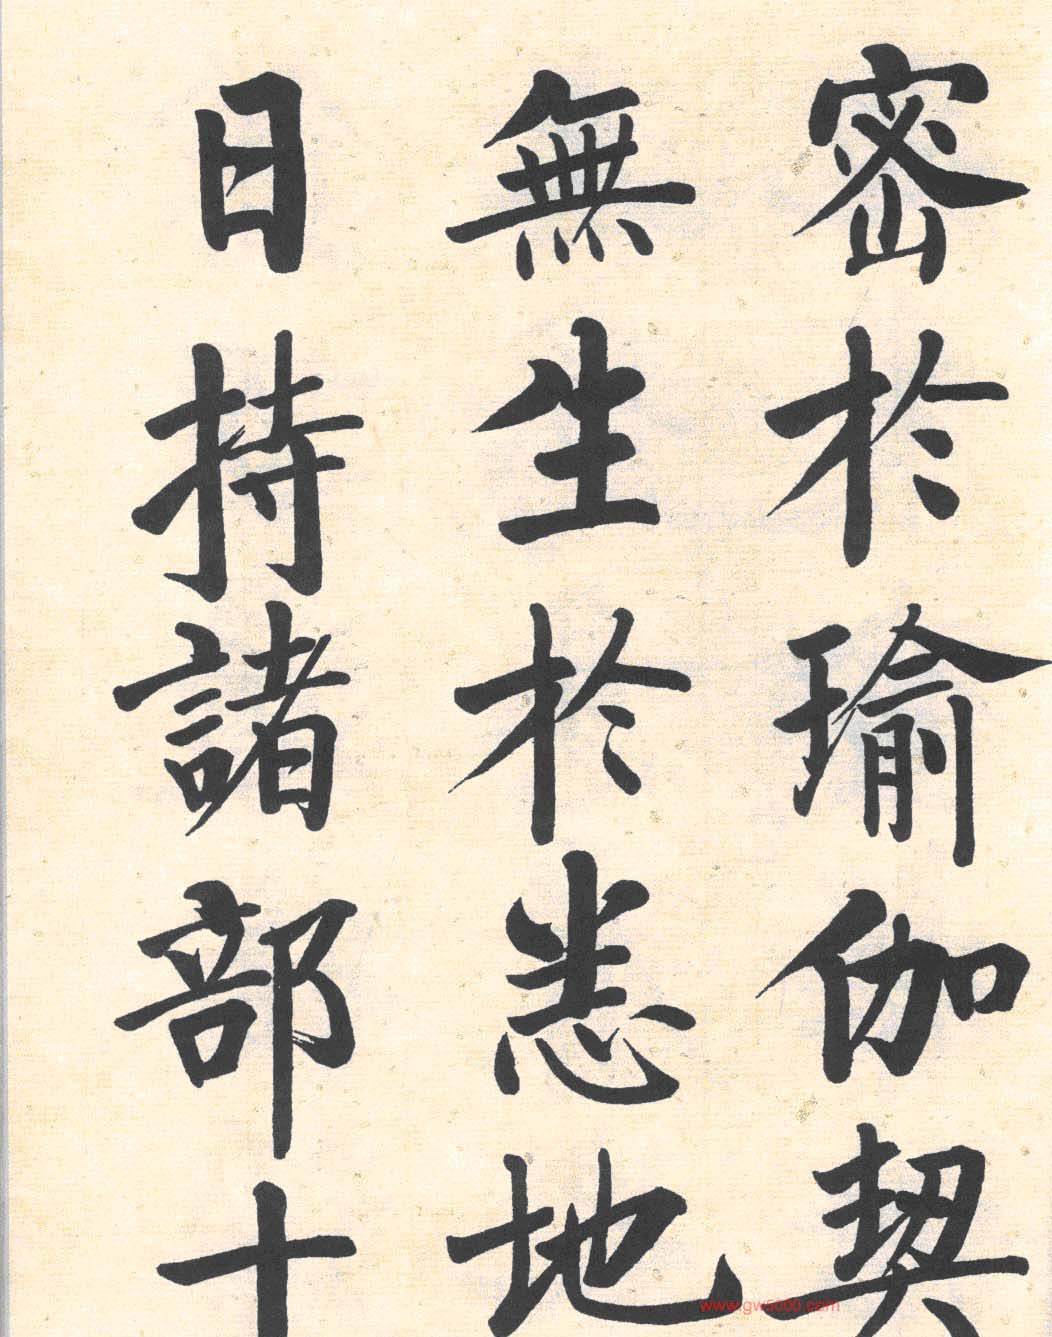 密於瑜伽契
無生於悉地
日持諸部十
www.gw5000.com